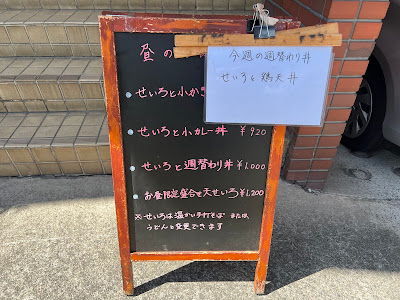 昼の
今週の週替わり丼
せいろと鶏天丼
せいろと小か
・せいろと小カレー丼 ¥920
・せいろと週替わり丼 ¥1.000
・お昼限定盛合せ天せいろ ¥1.200
※せいろは温かい手打そば または、
うどんと変更できます